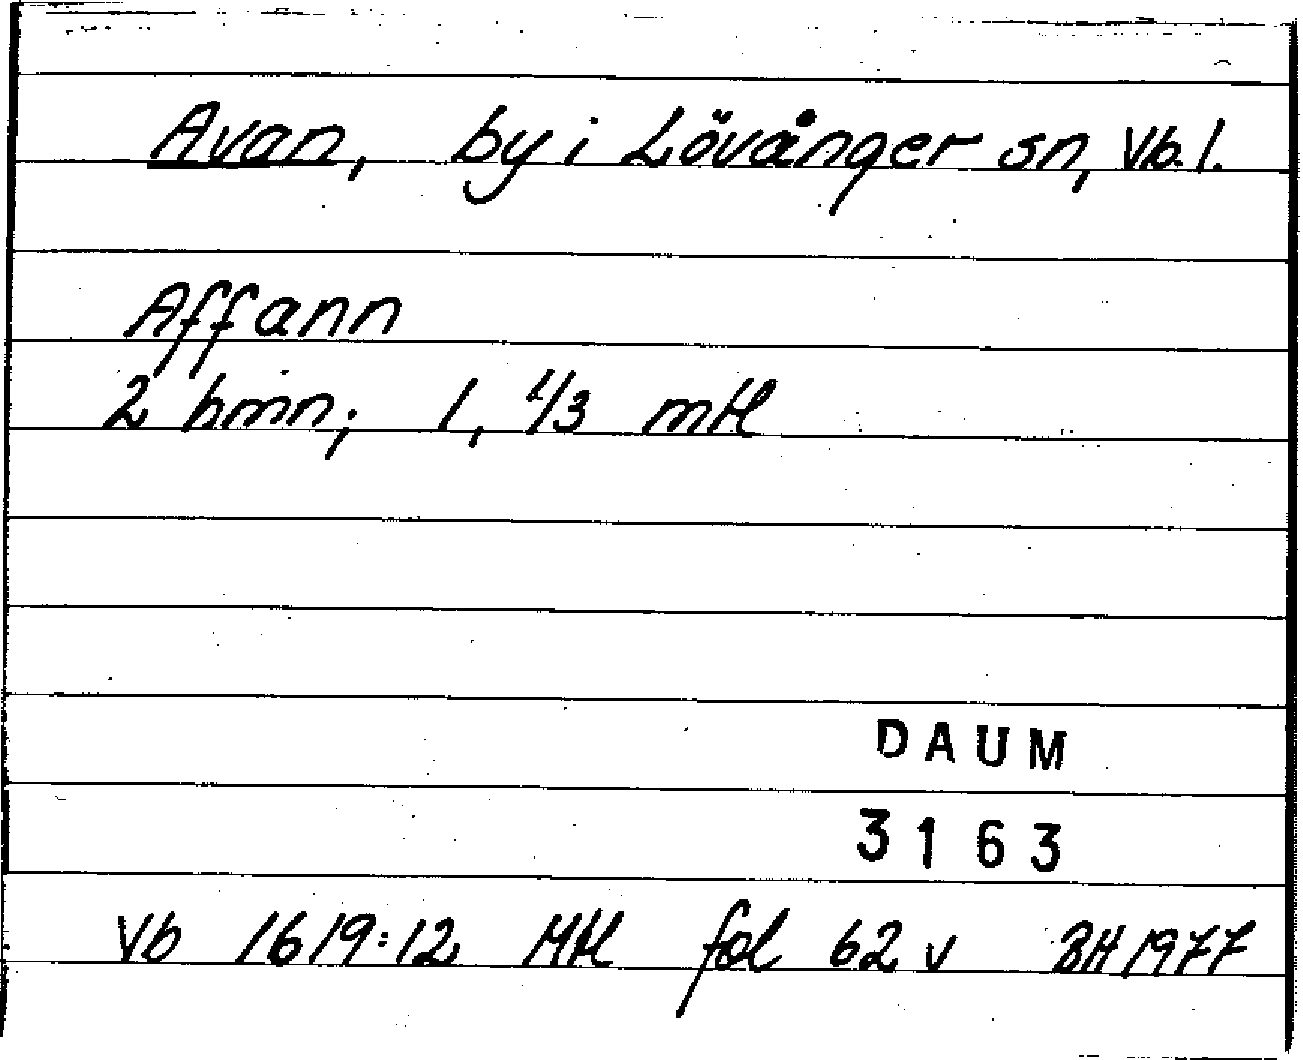 Avan, by i Lövånger sn, Vb. l.
Affann
2 hmn; 1, 1/3 mtl
DAUM
3163
Vb 1619:12 Mtl fol 62 v BH 1977